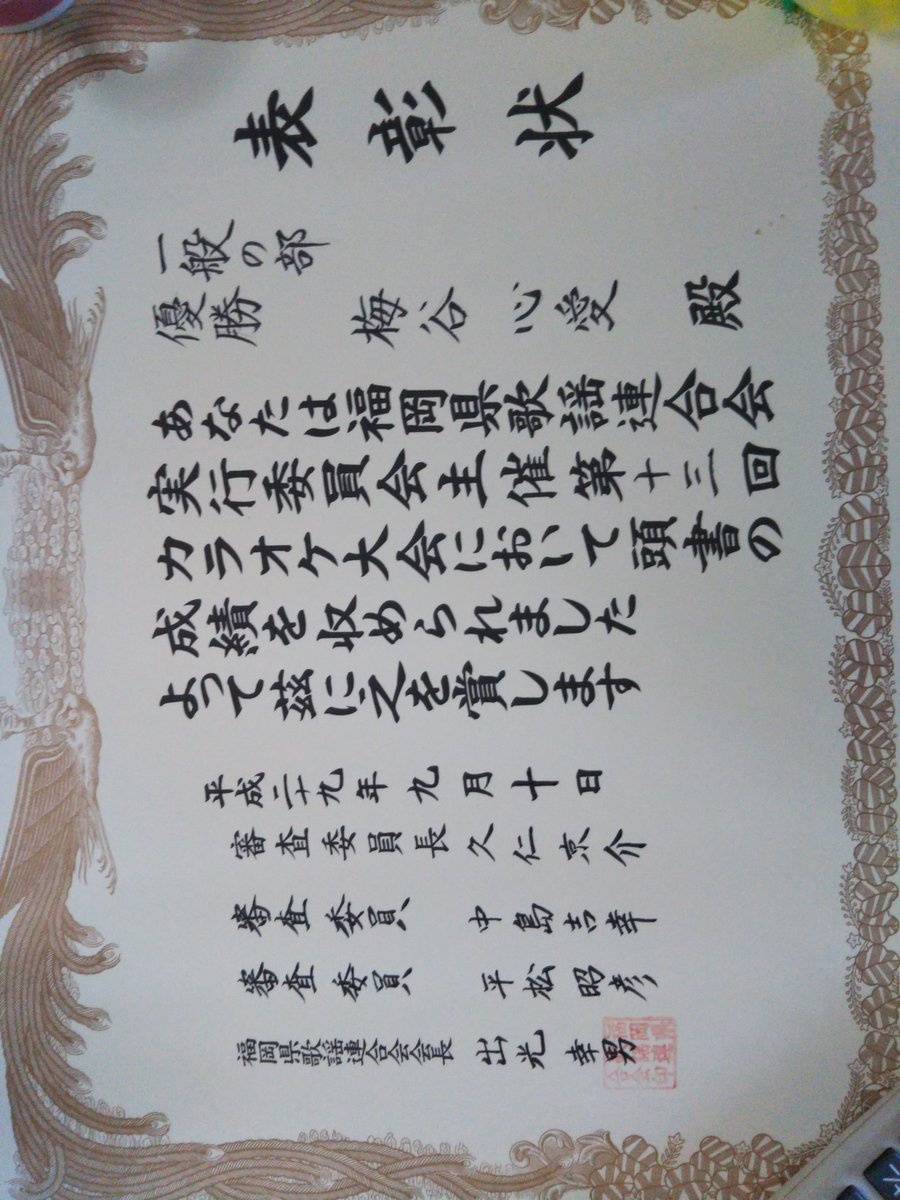 表彰状
一般の部
優勝 梅谷心愛 殿
あなたは福岡県歌謡連合会
実行委員会主催第十三回
カラオケ大会において頭書の
成績を収められました
よって茲に之を賞します
平成二十九年九月十日
審査委員長 久仁京介
審査委員 中島吉幸
審査委員 平松昭彦
福岡県歌謡連合会会長 出光幸男